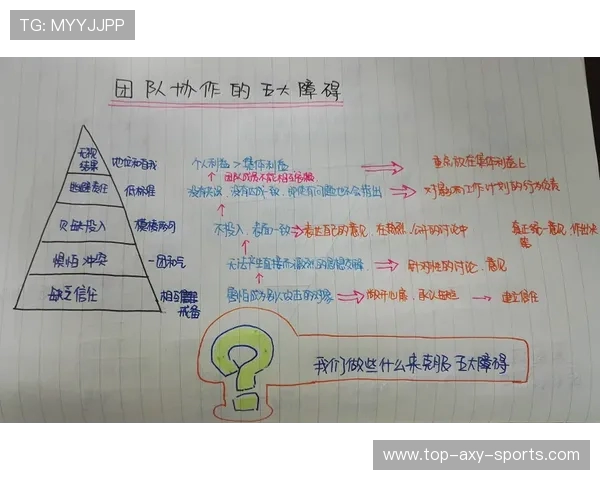 TG: MYYJJPP
团队协作的五大障碍
无视结果 地位和自我 个人利益 > 集体利益 重点放在集体利益上
团队成员不能相互
逃避责任 低标准 没有共识、没有达成一致、即使有问题也不会指出 对影响工作计划的行为负责
欠缺投入 模棱两可 不投入、表面一致 表达自己的意见、在热烈、公开的讨论中 真正统一意见,作出决定
惧怕冲突 一团和气 无法产生直接而激烈的思想交锋 针对性的讨论、意见
缺乏信任 相互戒备 害怕成为别人攻击的对象 敞开心扉、承认 建立信任
我们做些什么来克服五大障碍
www.top-axy-sports.com